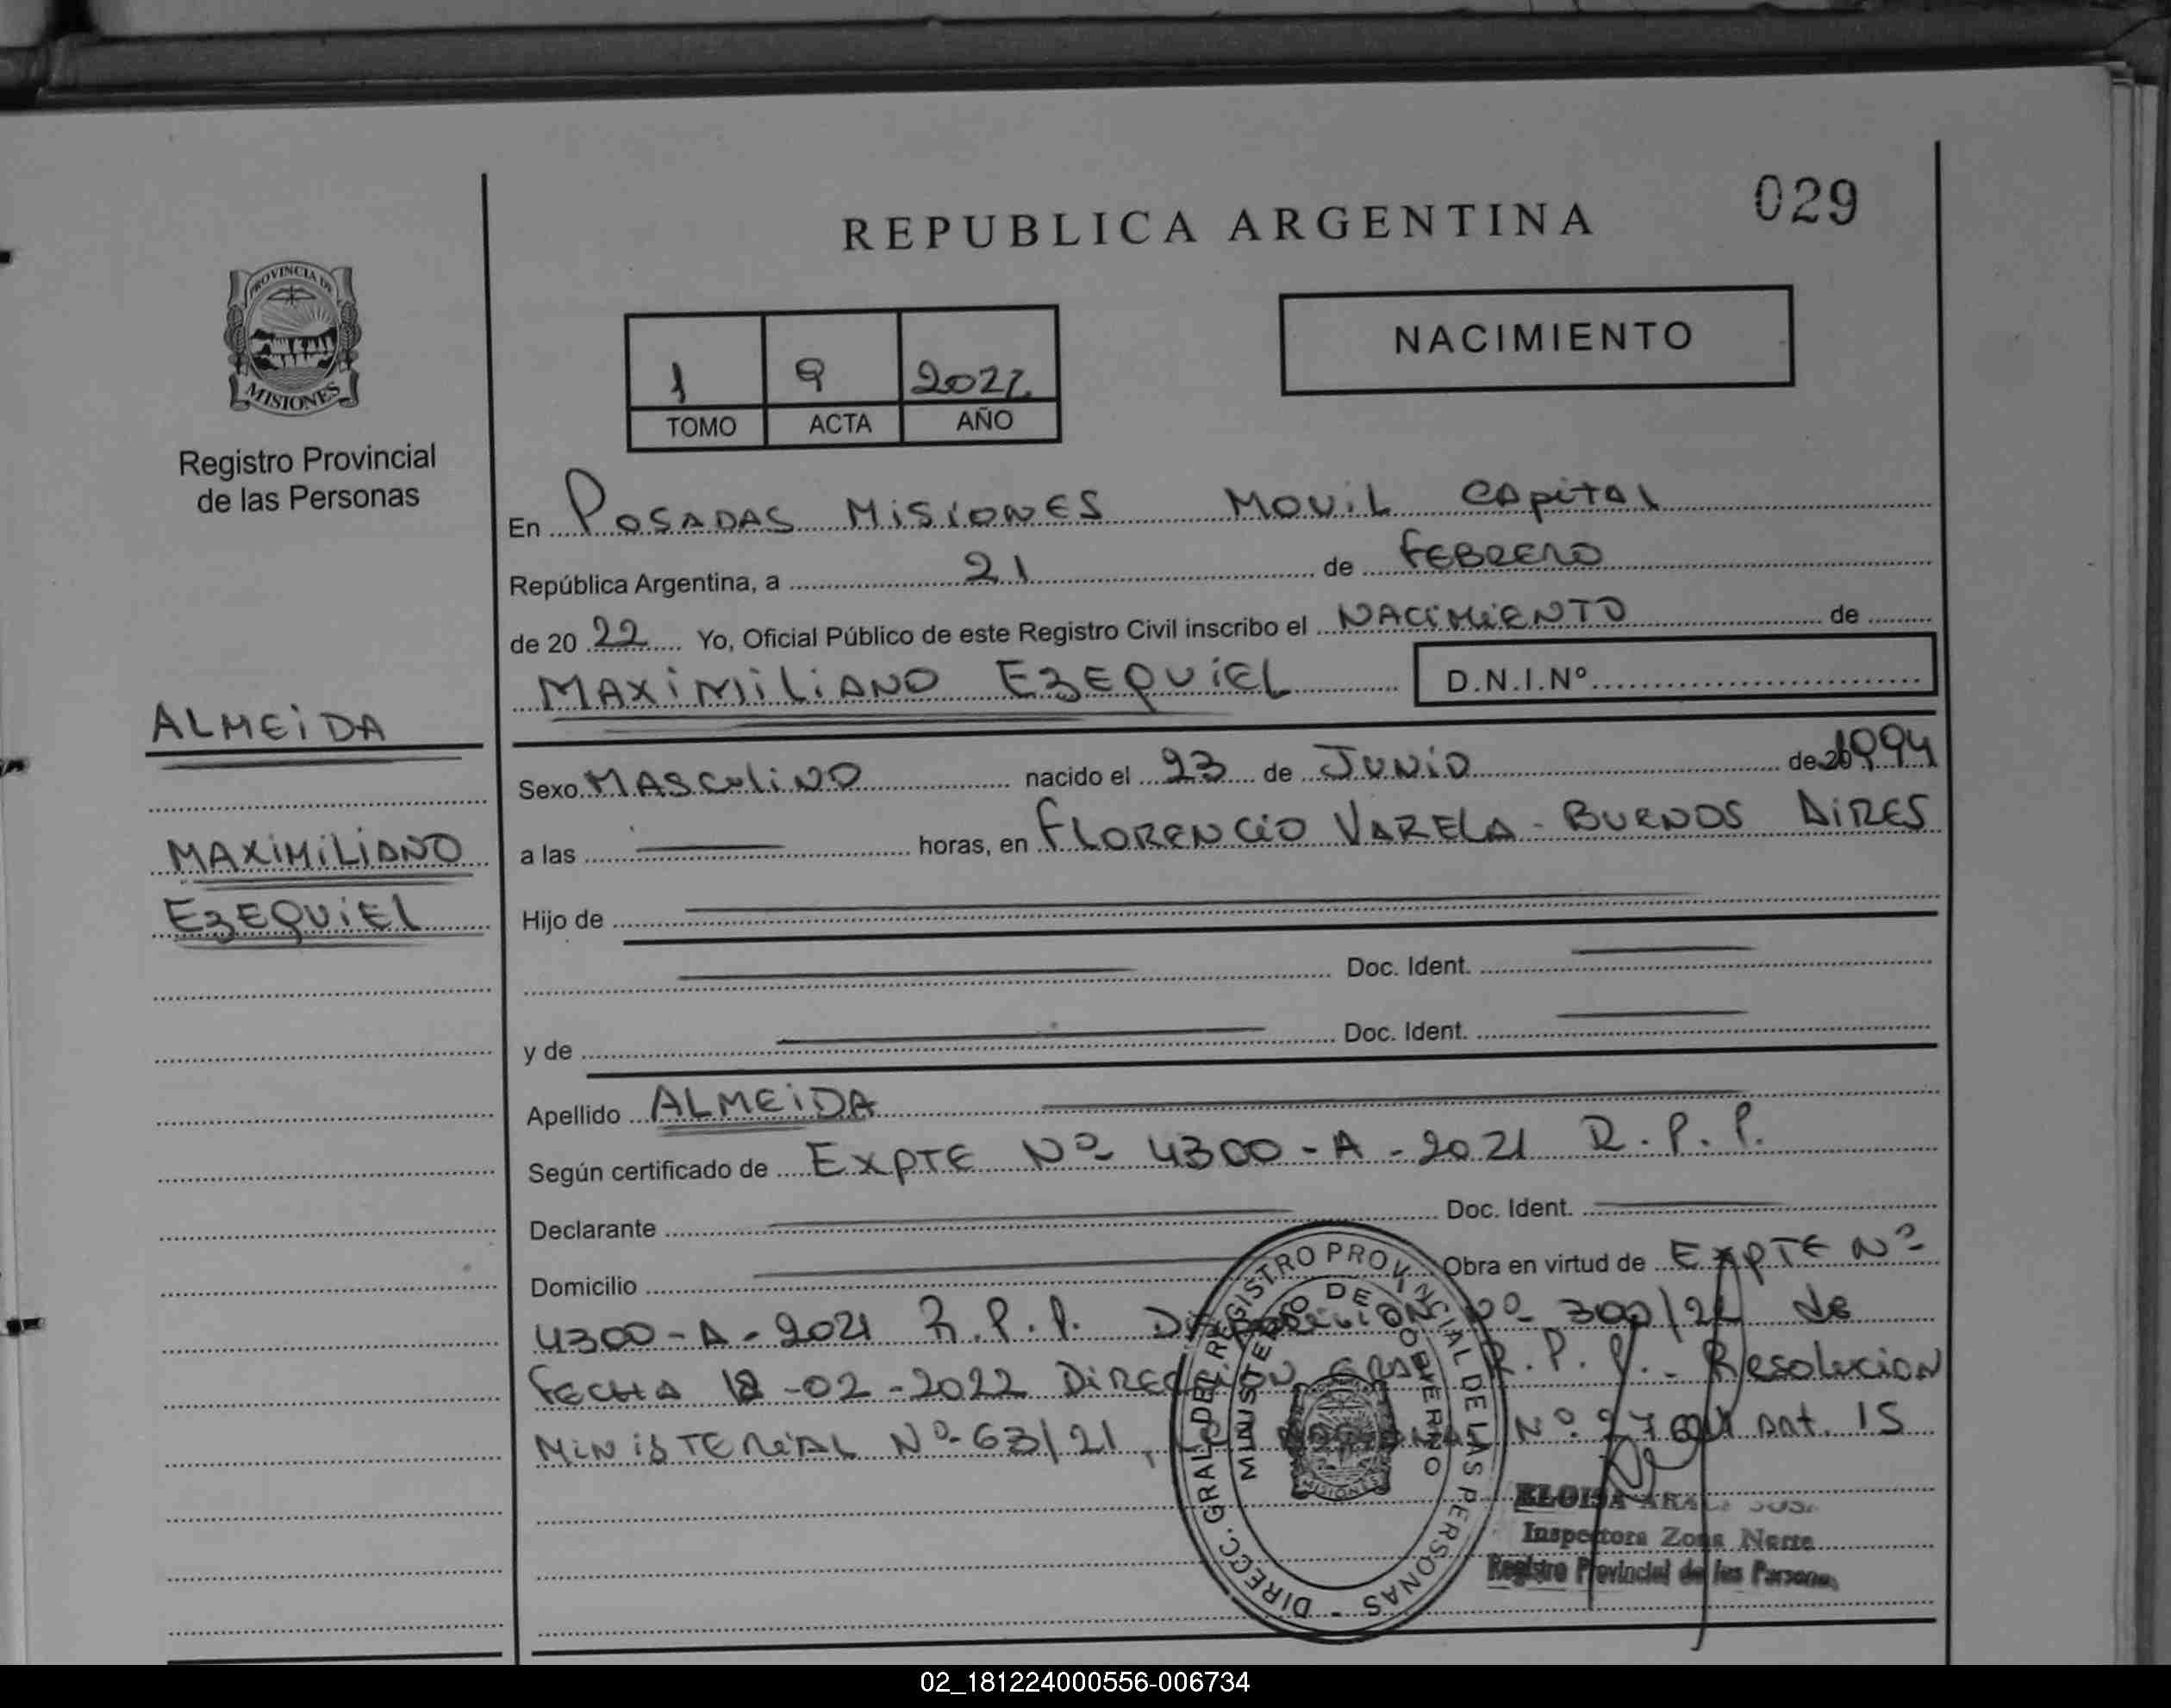 029
REPUBLICA ARGENTINA
PROVINCIA DE
MISIONES
Registro Provincial
de las Personas
NACIMIENTO
1 9 2022
TOMO ACTA AÑO
En POSADAS MISIONES MOVIL CAPITAL
República Argentina, a 21 de FEBRERO
de 20 22 Yo, Oficial Público de este Registro Civil inscribo el NACIMIENTO de
MAXIMILIANO EZEQUIEL D.N.I.Nº
ALMEIDA
MAXIMILIANO
EZEQUIEL
Sexo MASCULINO nacido el 23 de JUNIO de 20 1994
a las horas, en FLORENCIO VARELA - BUENOS AIRES
Hijo de
Doc. Ident.
y de Doc. Ident.
Apellido ALMEIDA
Según certificado de EXPTE Nº 4300-A-2021 R.P.P.
Declarante Doc. Ident.
Domicilio Obra en virtud de EXPTE Nº
4300-A-2021 R.P.P. DISPOSICION Nº 300/22 de
FECHA 18-02-2022 DIRECCION GRAL R.P.P.- Resolucion
MINISTERIAL Nº 63/21, Nº ART. 15
DIRECC. GRAL. DEL REGISTRO PROVINCIAL DE LAS PERSONAS -
MINISTERIO DE GOBIERNO
MISIONES
ELOISA
Inspectora Zona Norte
Registro Provincial de las Personas
02_181224000556-006734